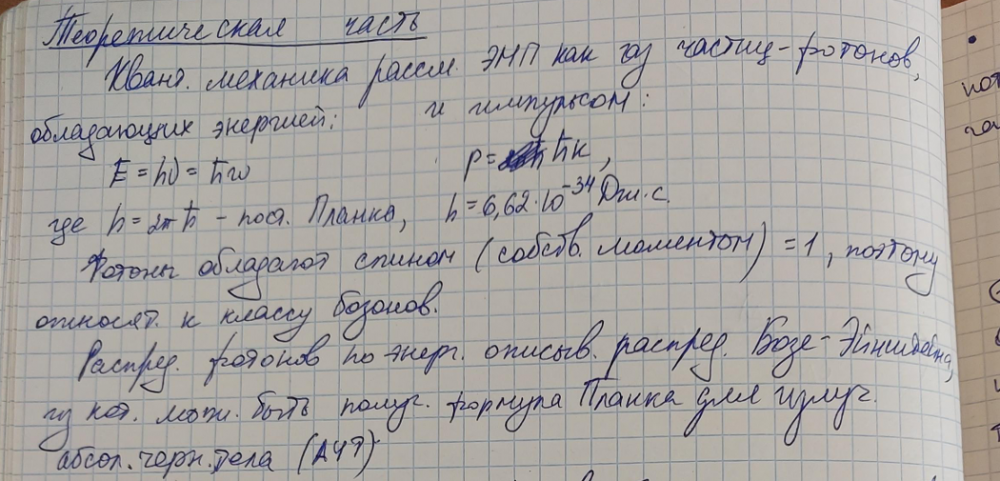 Теоретическая часть
Квант. механика рассм. ЭМП как газ частиц-фотонов,
обладающих энергией: и импульсом:
E = hν = ħω p = ħk,
где h = 2π ħ - пост. Планка, h = 6,62·10⁻³⁴ Дж·с.
Фотоны обладают спином (собств. моментом) = 1, поэтому
относят. к классу бозонов.
Распред. фотонов по энерг. описыв. распред. Бозе-Эйнштейна,
из кот. мож. быть получ. формула Планка для излуч.
абсол. черн. тела (АЧТ)